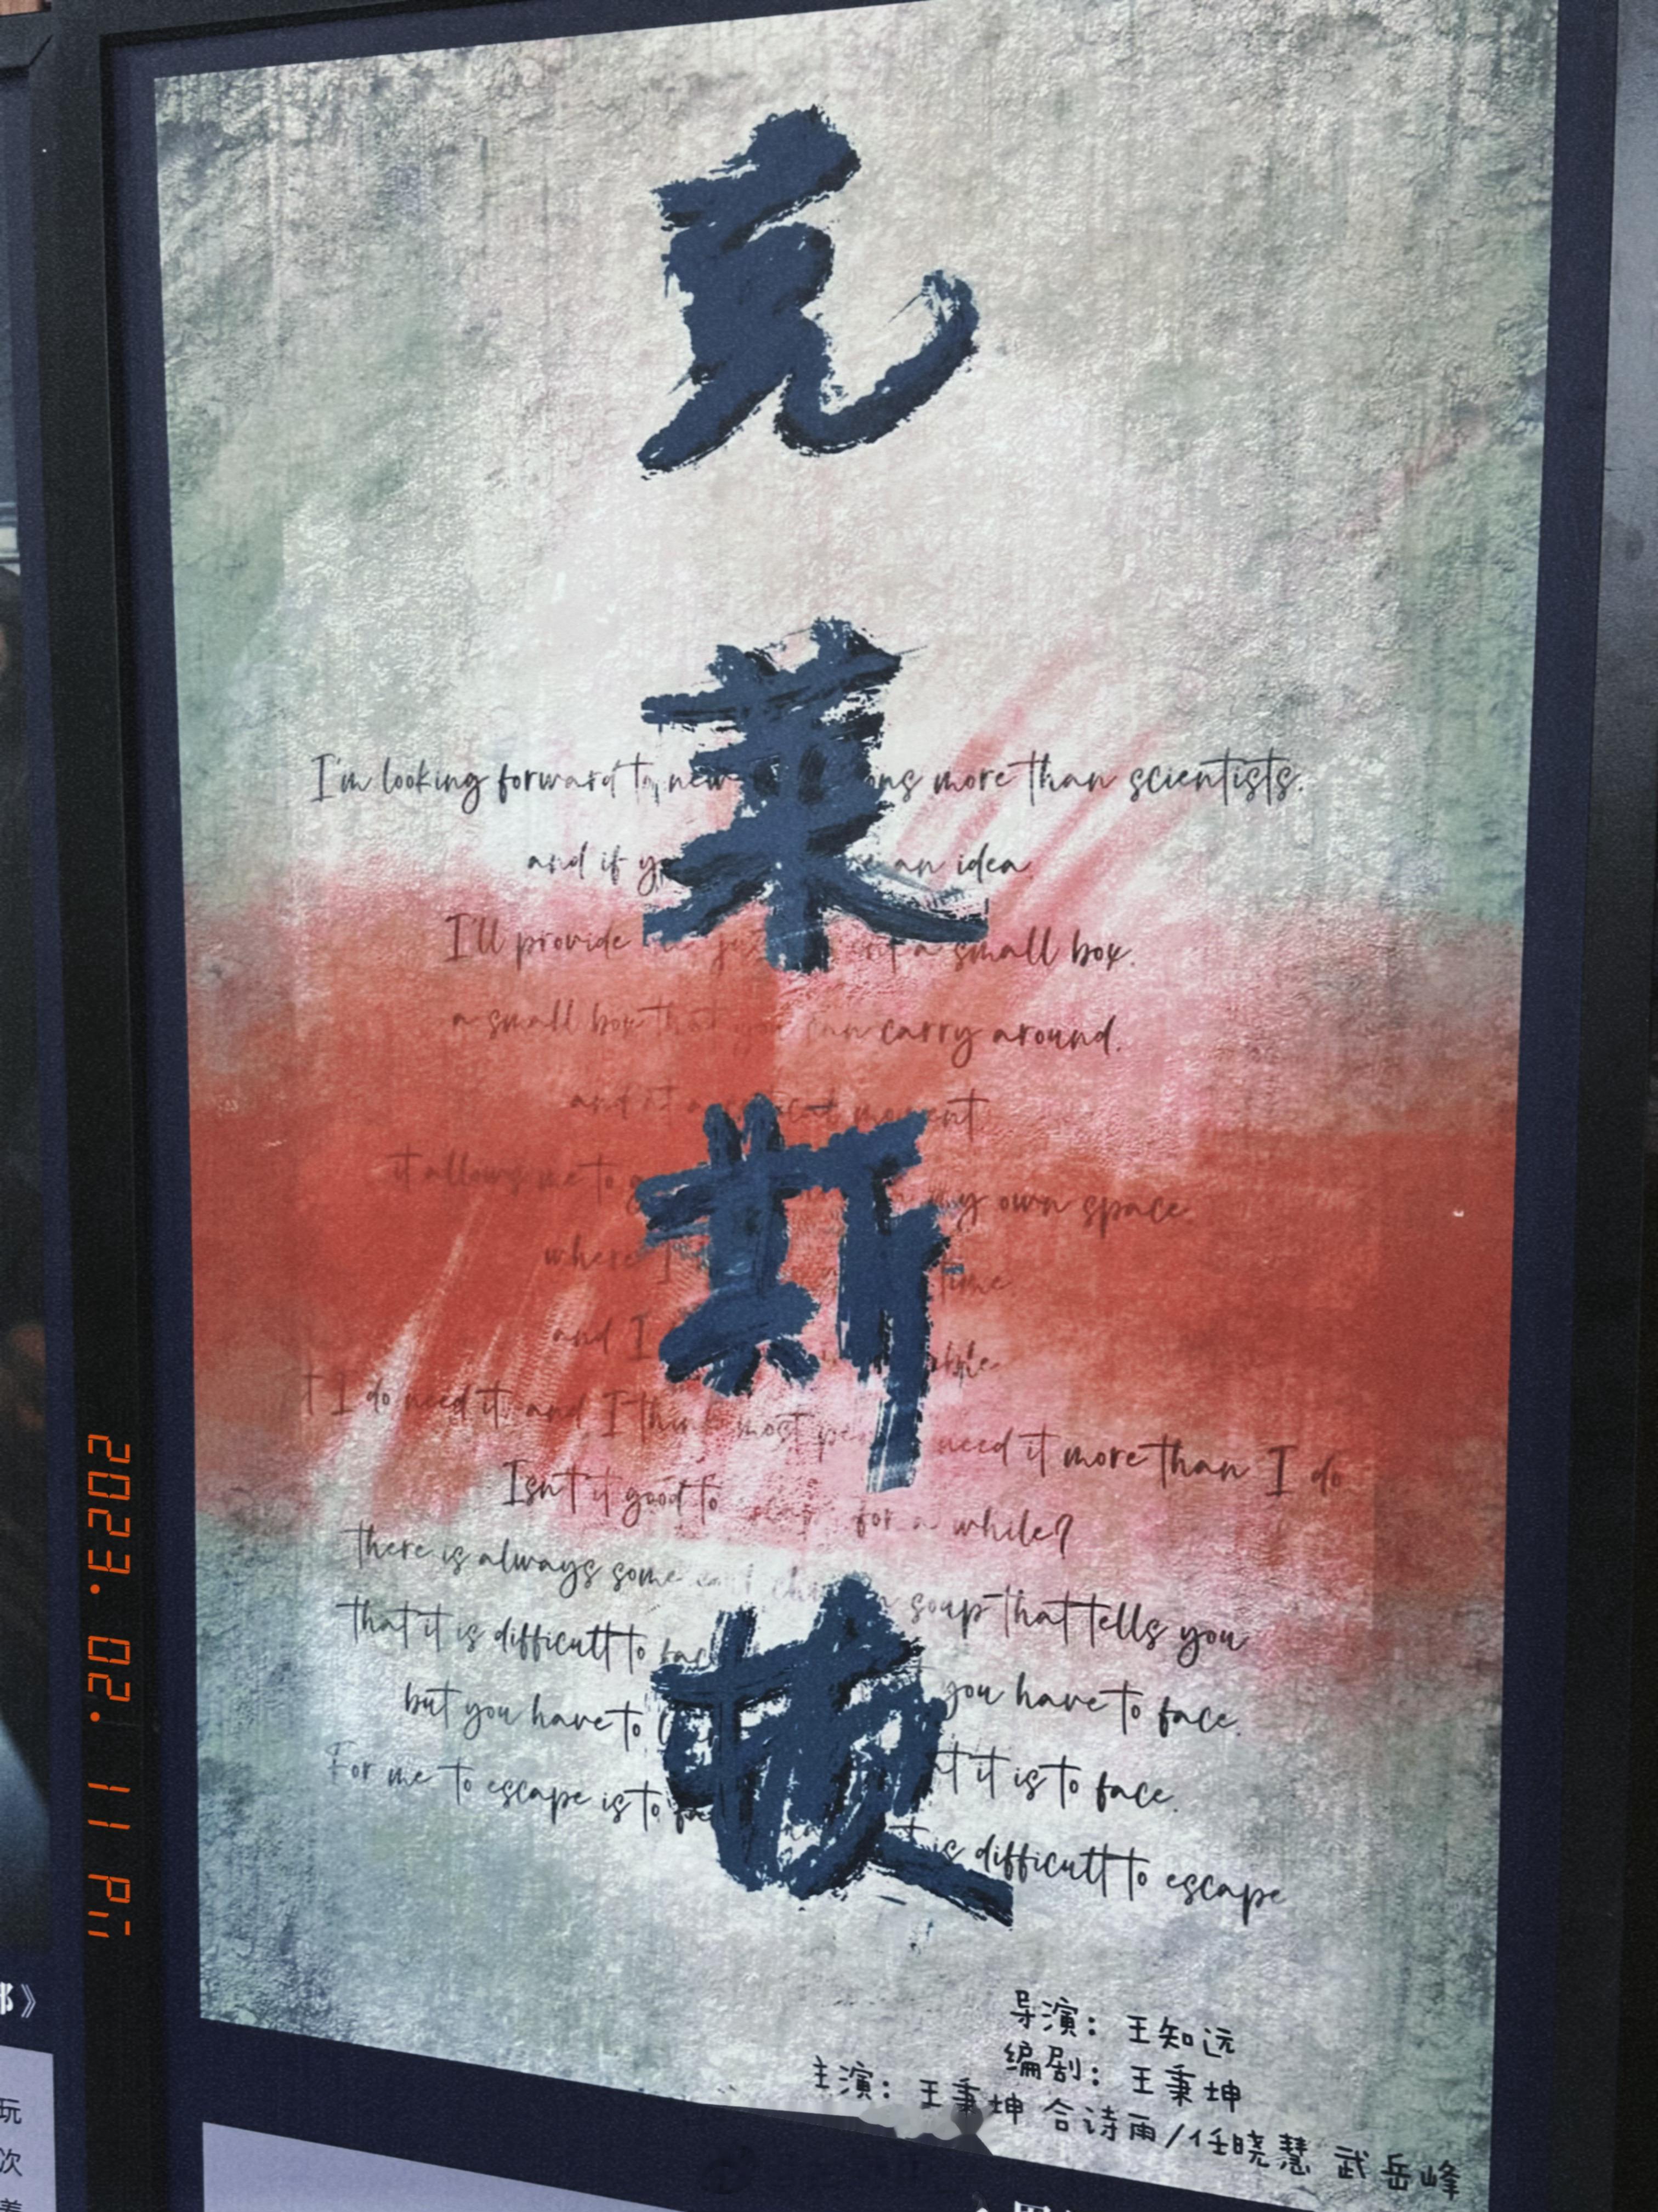 克莱斯顿
I'm looking forward to new ns more than scientists.
and if an idea
I'll provide a small box.
a small box that you can carry around.
and at a moment
it allows me to my own space
where I time.
and I
I do need it, and I think most need it more than I do
Isn't it good to for a while?
there is always some soup that tells you
that it is difficult to you have to face.
but you have to it is to face.
For me to escape is to is difficult to escape
导演：王知远
编剧：王秉坤
主演：王秉坤 合诗雨/任晓慧 武岳峰
2023. 02. 11
》
玩
次